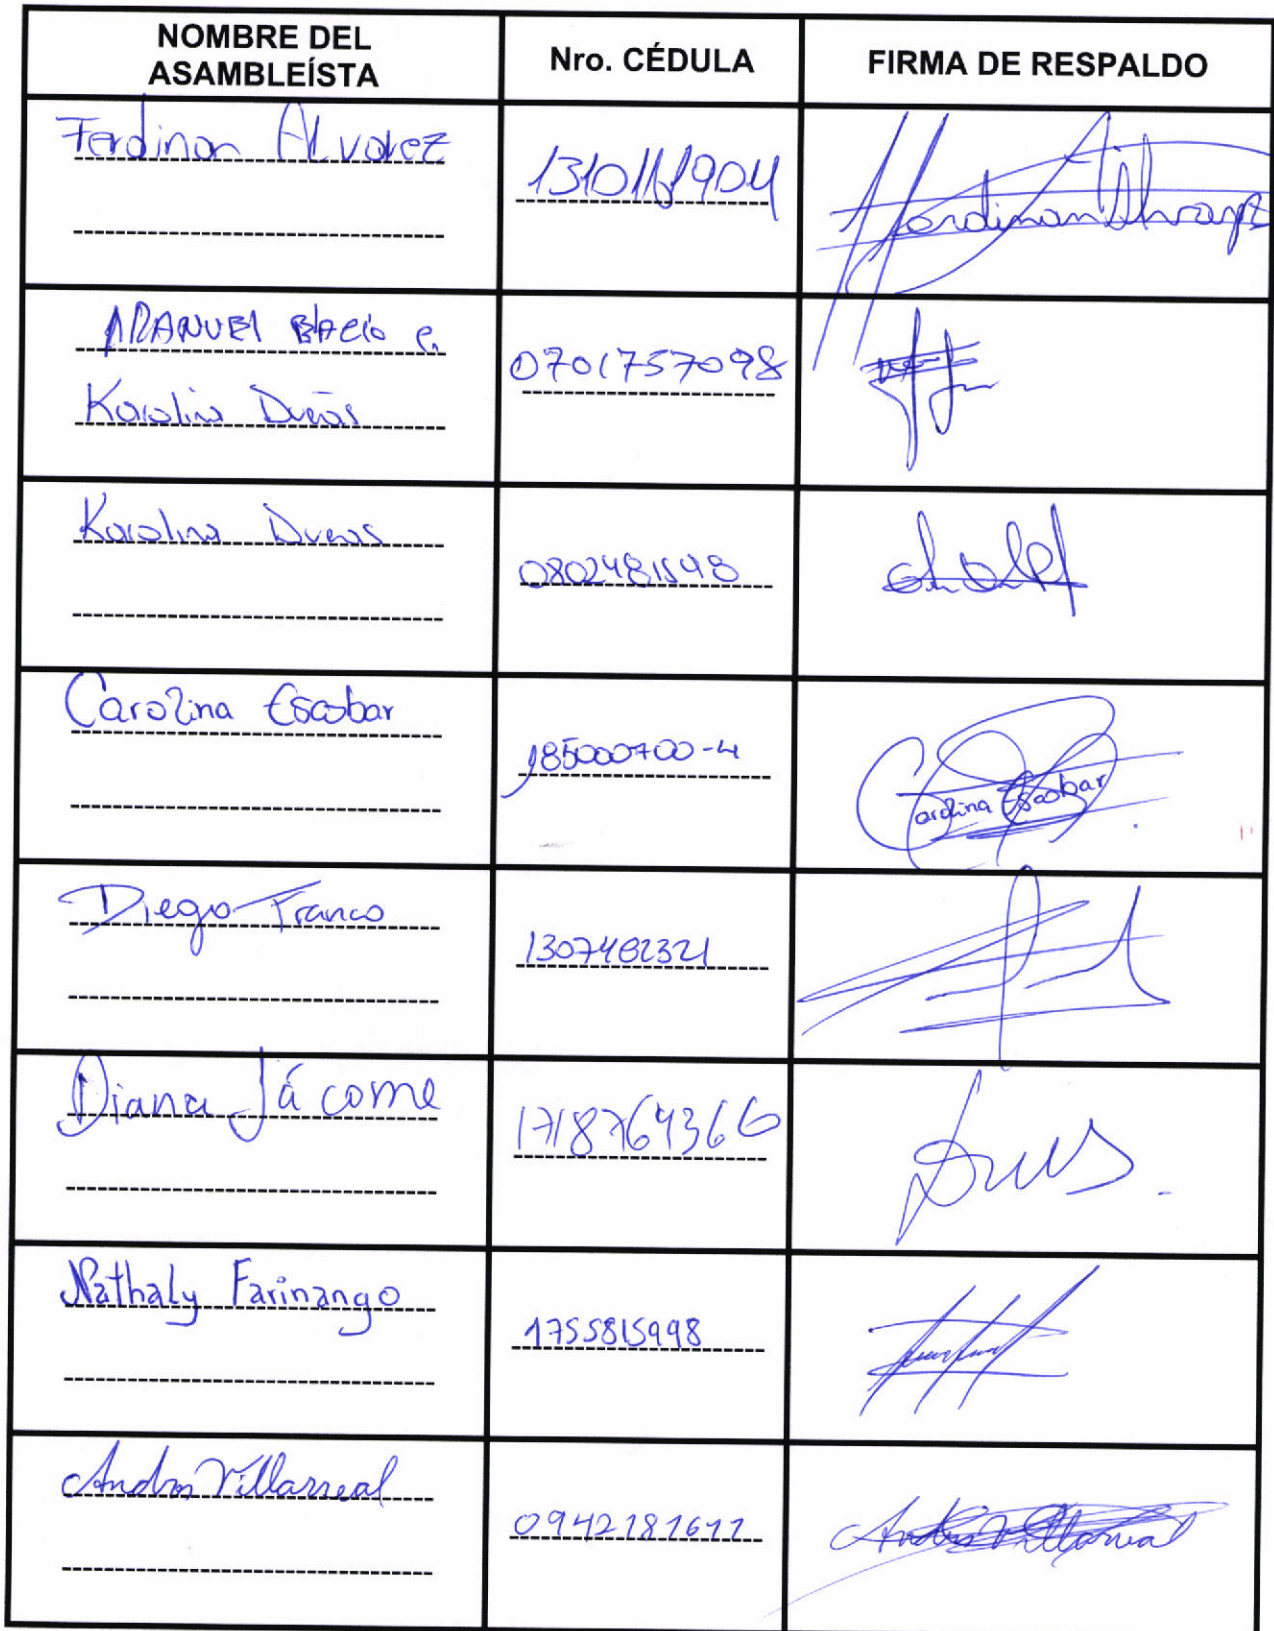 NOMBRE DEL ASAMBLEÍSTA
Nro. CÉDULA
FIRMA DE RESPALDO
Ferdinan Alvarez
1310161904
Ferdinan Alvarez
MANUEL BACIO C.
Karolina Dueñas
0701757098
Karolina Duenas
0802481548
Carolina Escobar
185000700-4
Carolina Escobar
Diego Franco
1307482321
Diana Jácome
1718764366
Nathaly Farinango
1755815998
Andres Villarreal
0942181611
Andres Villarreal